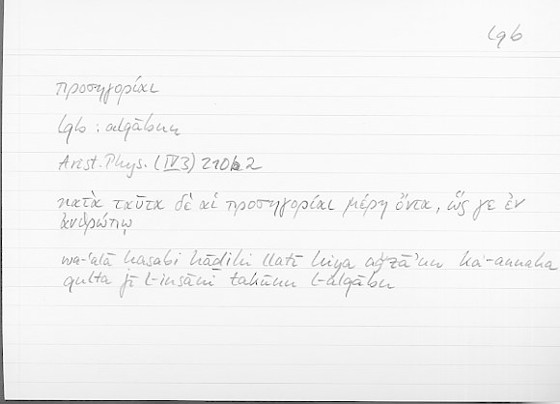 lqb
προσηγορίαι
lqb : alqābun
Arist. Phys. (IV3) 210b2
κατὰ ταῦτα δὲ αἱ προσηγορίαι μέρη ὄντα, ὥς γε ἐν
ἀνθρώπῳ
wa-ʿalā ḥasabi hāḏihi llatī hiya aǧzāʾun ka-annaka
qulta fī l-insāni takūnu l-alqābu